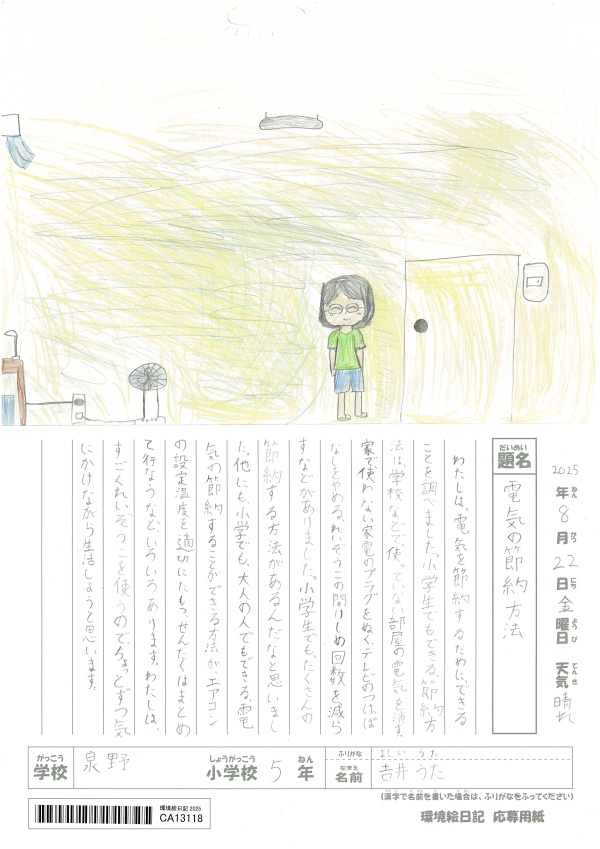 2025年8月22日金曜日 天気晴れ
ねん がつ にち ようび てんき
だいめい
題名
電気の節約方法
わたしは、電気を節約するために、できる
ことを調べました。小学生でもできる節約方
法は、学校などで使っていない部屋の電気を消す、
家で使わない家電のプラグをぬく、テレビのつけっぱ
なしをやめる、れいぞうこの開けしめ回数を減ら
すなどがありました。小学生でも、たくさんの
節約する方法があるんだなと思いまし
た。他にも、小学でも、大人の人でもできる、電
気の節約することができる方法が、エアコン
の設定温度を適切にたもつ、せんたくはまとめ
て行なうなど、いろいろあります。わたしは、
すごくれいぞうこを使うので、ちょっとずつ気
にかけながら生活しようと思います。
がっこう しょうがっこう ねん
学校 泉野 小学校 5年
ふりがな よしい うた
なまえ
名前 吉井 うた
(漢字で名前を書いた場合は、ふりがなをふってください)
環境絵日記 2025
CA13118
環境絵日記 応募用紙